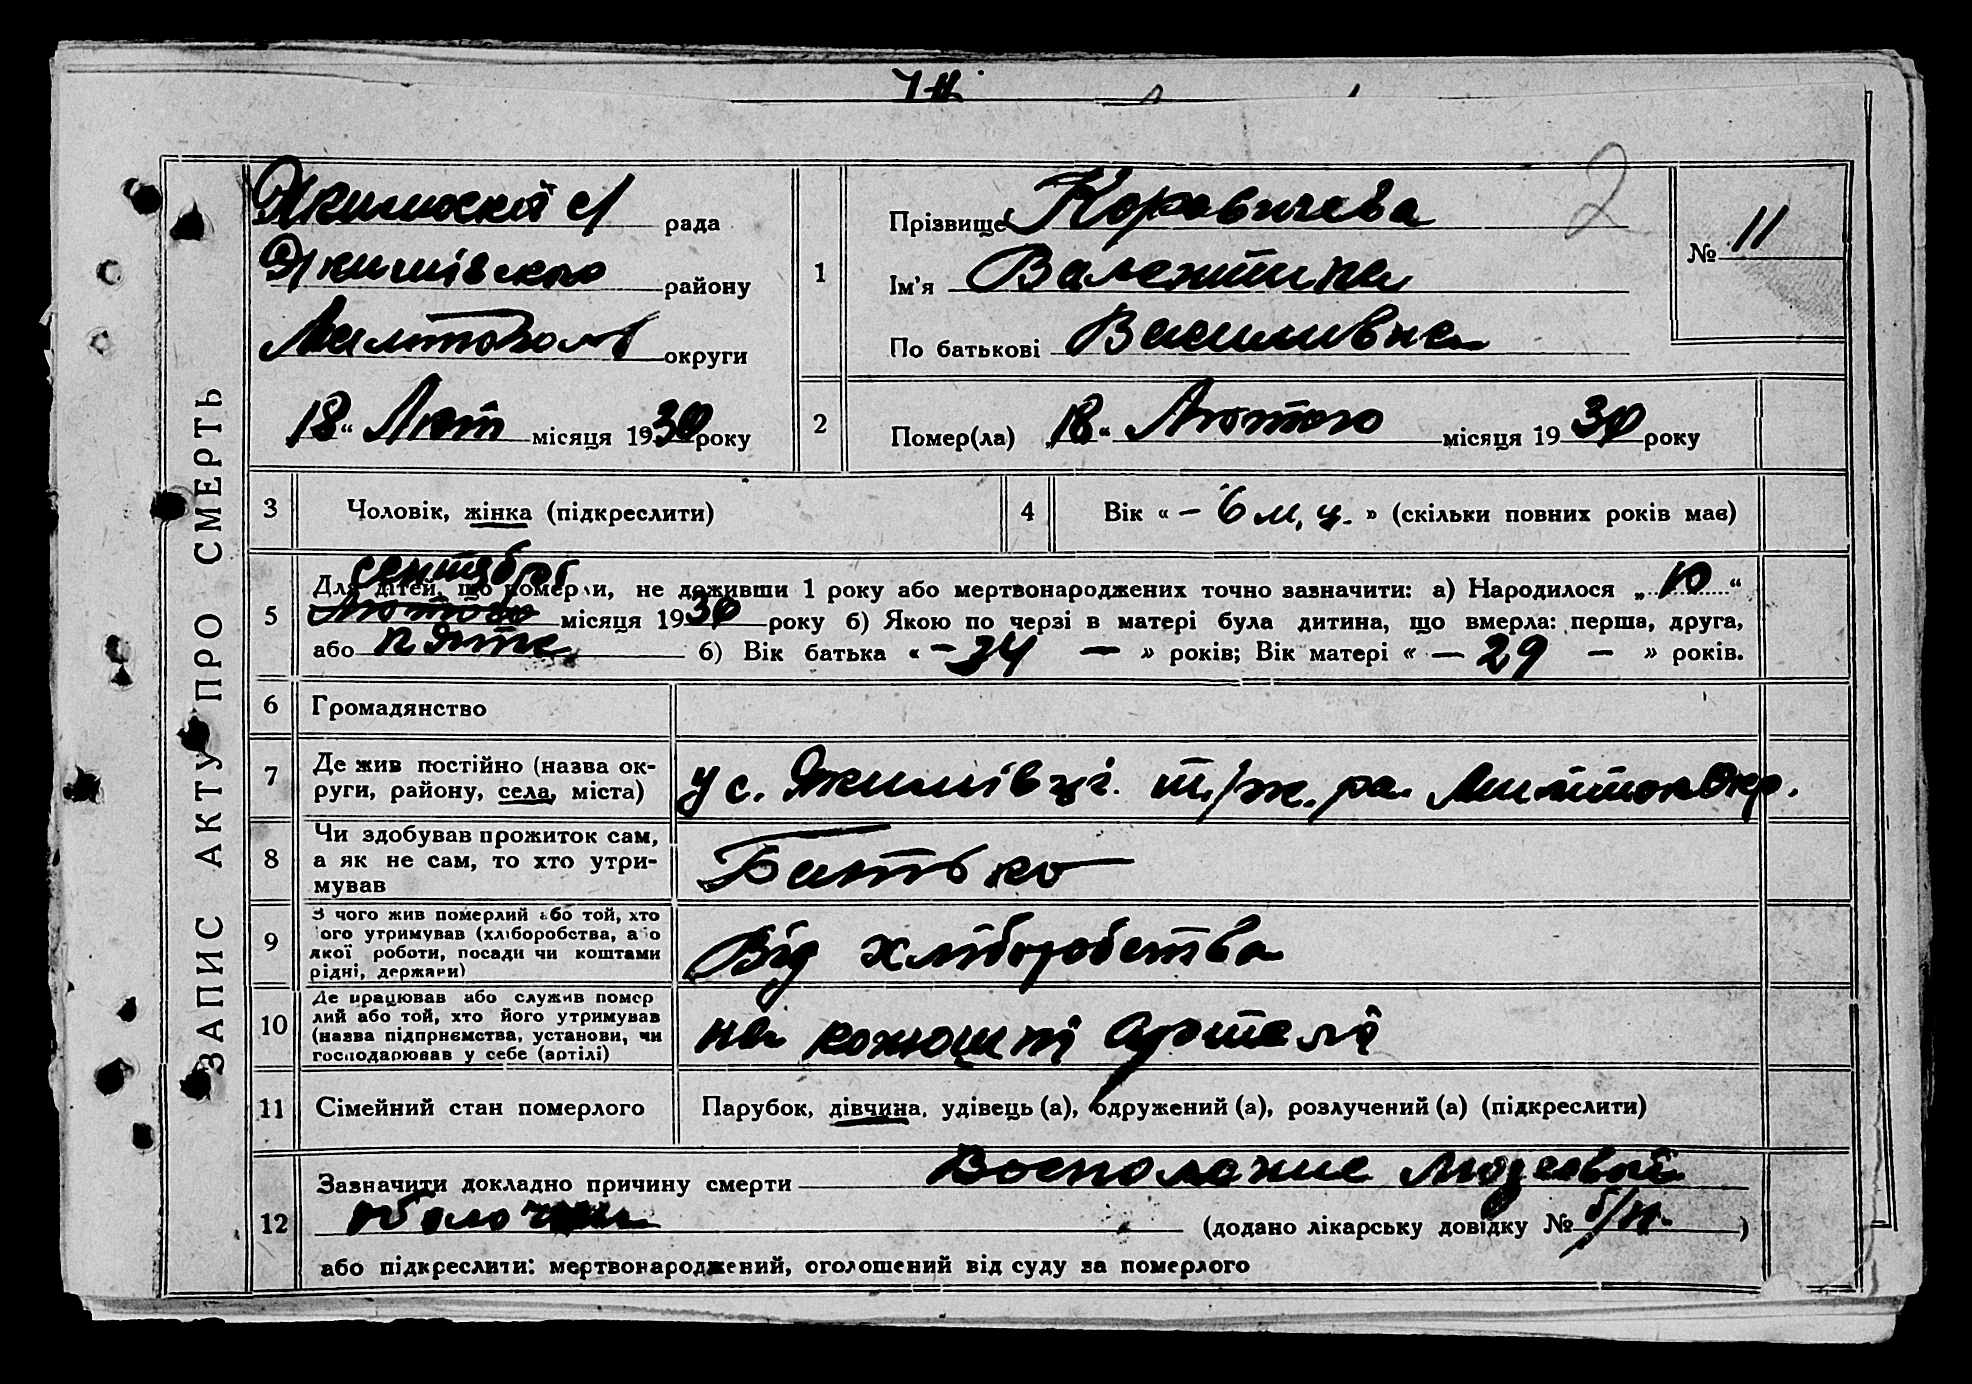 ЗАПИС АКТУ ПРО СМЕРТЬ
с/ рада
Якимівського району
округи
18 " Лют місяця 1930 року
1
Прізвище Коравичева
Ім'я Валентина
По батькові Василивна
2
№ 11
2
Помер(ла) 18 " Лютого місяця 1930 року
3
Чоловік, жінка (підкреслити)
4
Вік « – 6 м.ц. » (скільки повних років мав)
сентября
5
Для дітей, що померли, не доживши 1 року або мертвонароджених точно зазначити: а) Народилося „ 10 “
Лютого місяця 1930 року б) Якою по черзі в матері була дитина, що вмерла: перша, друга,
або пята б) Вік батька « – 34 – » років; Вік матері « – 29 – » років.
6
Громадянство
7
Де жив постійно (назва ок-
руги, району, села, міста)
у с. Якимівці. т/ж. ра. Окр.
8
Чи здобував прожиток сам,
а як не сам, то хто утри-
мував
Батько
9
З чого жив померлий або той, хто
його утримував (хліборобства, або
якої роботи, посади чи коштами
рідні, держави)
Від хліборобства
10
Де працював або служив помер
лий або той, хто його утримував
(назва підприємства, установи, чи
господарював у себе (артілі)
на конюшні Артелі
11
Сімейний стан померлого
Парубок, дівчина, удівець (а), одружений (а), розлучений (а) (підкреслити)
12
Зазначити докладно причину смерти Воспаление мозговой
оболочки (додано лікарську довідку № б/н. )
або підкреслити: мертвонароджений, оголошений від суду за померлого